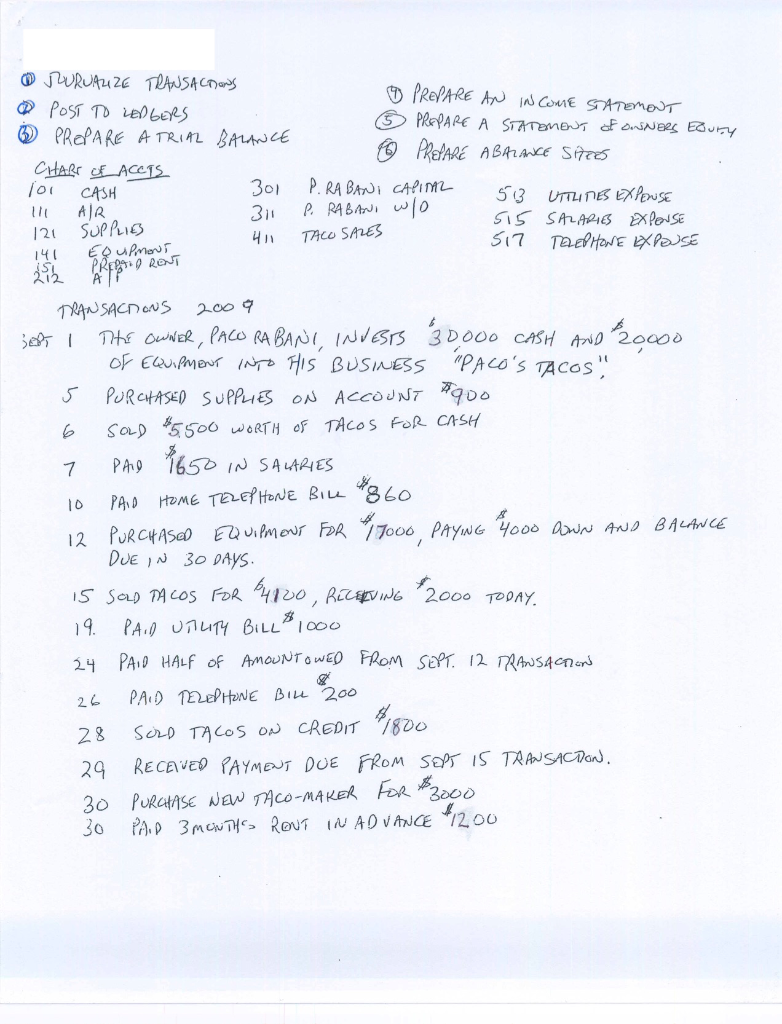 ① JOURNALIZE TRANSACTIONS
② POST TO LEDGERS
③ PREPARE A TRIAL BALANCE
④ PREPARE AN INCOME STATEMENT
⑤ PREPARE A STATEMENT OF OWNERS EQUITY
⑥ PREPARE A BALANCE
CHART OF ACCTS
101 CASH
111 A/R
121 SUPPLIES
141 EQUIPMENT
151 PREPAID RENT
212 A/P
301 P. RABANI CAPITAL
311 P. RABANI W/D
411 TACO SALES
513 UTILITIES EXPENSE
515 SALARIES EXPENSE
517 TELEPHONE EXPENSE
TRANSACTIONS 2009
SEPT 1 THE OWNER, PACO RABANI, INVESTS $30,000 CASH AND $20,000
OF EQUIPMENT INTO HIS BUSINESS "PACO'S TACOS".
5 PURCHASED SUPPLIES ON ACCOUNT $900
6 SOLD $5,500 WORTH OF TACOS FOR CASH
7 PAID $1650 IN SALARIES
10 PAID HOME TELEPHONE BILL $860
12 PURCHASED EQUIPMENT FOR $17000, PAYING $4000 DOWN AND BALANCE
DUE IN 30 DAYS.
15 SOLD TACOS FOR $4100, RECEIVING $2000 TODAY.
19. PAID UTILITY BILL $1000
24 PAID HALF OF AMOUNT OWED FROM SEPT. 12 TRANSACTION
26 PAID TELEPHONE BILL $200
28 SOLD TACOS ON CREDIT $1800
29 RECEIVED PAYMENT DUE FROM SEPT 15 TRANSACTION.
30 PURCHASE NEW TACO-MAKER FOR $3000
30 PAID 3 MONTHS RENT IN ADVANCE $1200